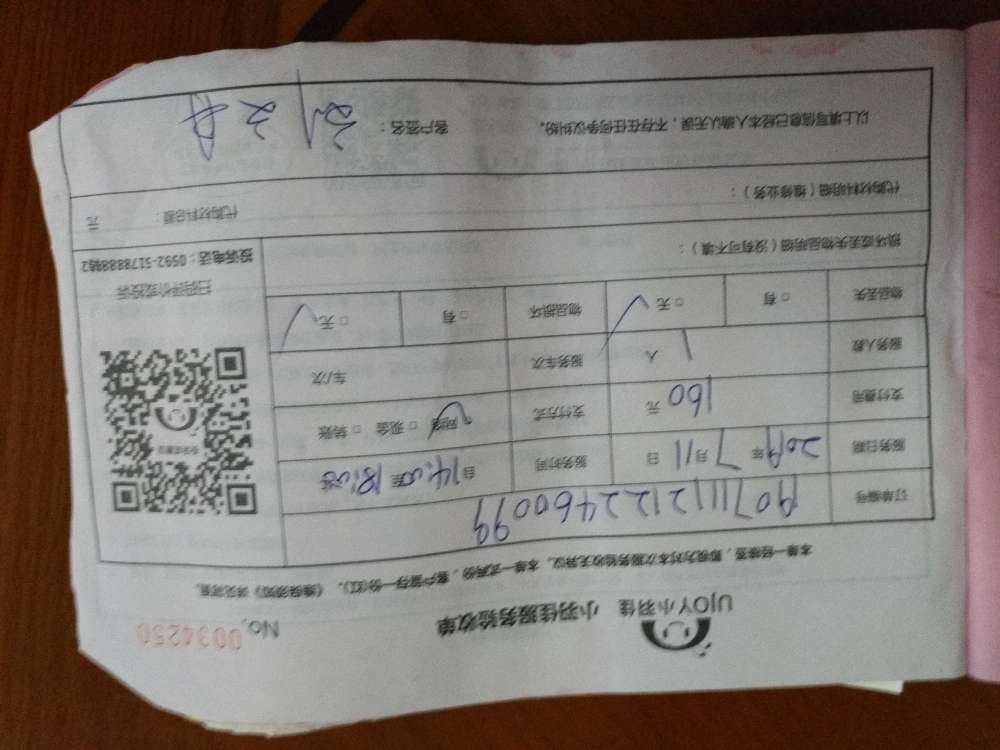 UJOY小羽佳 小羽佳服务验收单 No. 0034250
本单一经签签，即视为对本次服务验收无异议。本单一式两份，客户留存一份(红)。
订单编号 190711121222460099
服务日期 2019年7月11日 服务时间 自14:00至18:00
支付费用 160元 支付方式 □现金 □转账
服务人数 1人 服务车次 车/次
物品丢失 □有 □无 物品损坏 □有 □无
扫码评价或投诉
投诉电话：0592-5178888
损坏或丢失物品明细（没有可不填）：
代购材料明细（维修业务）： 代购材料总额： 元
以上填写信息已经本人确认无误，不存在任何争议纠纷。 客户签名：